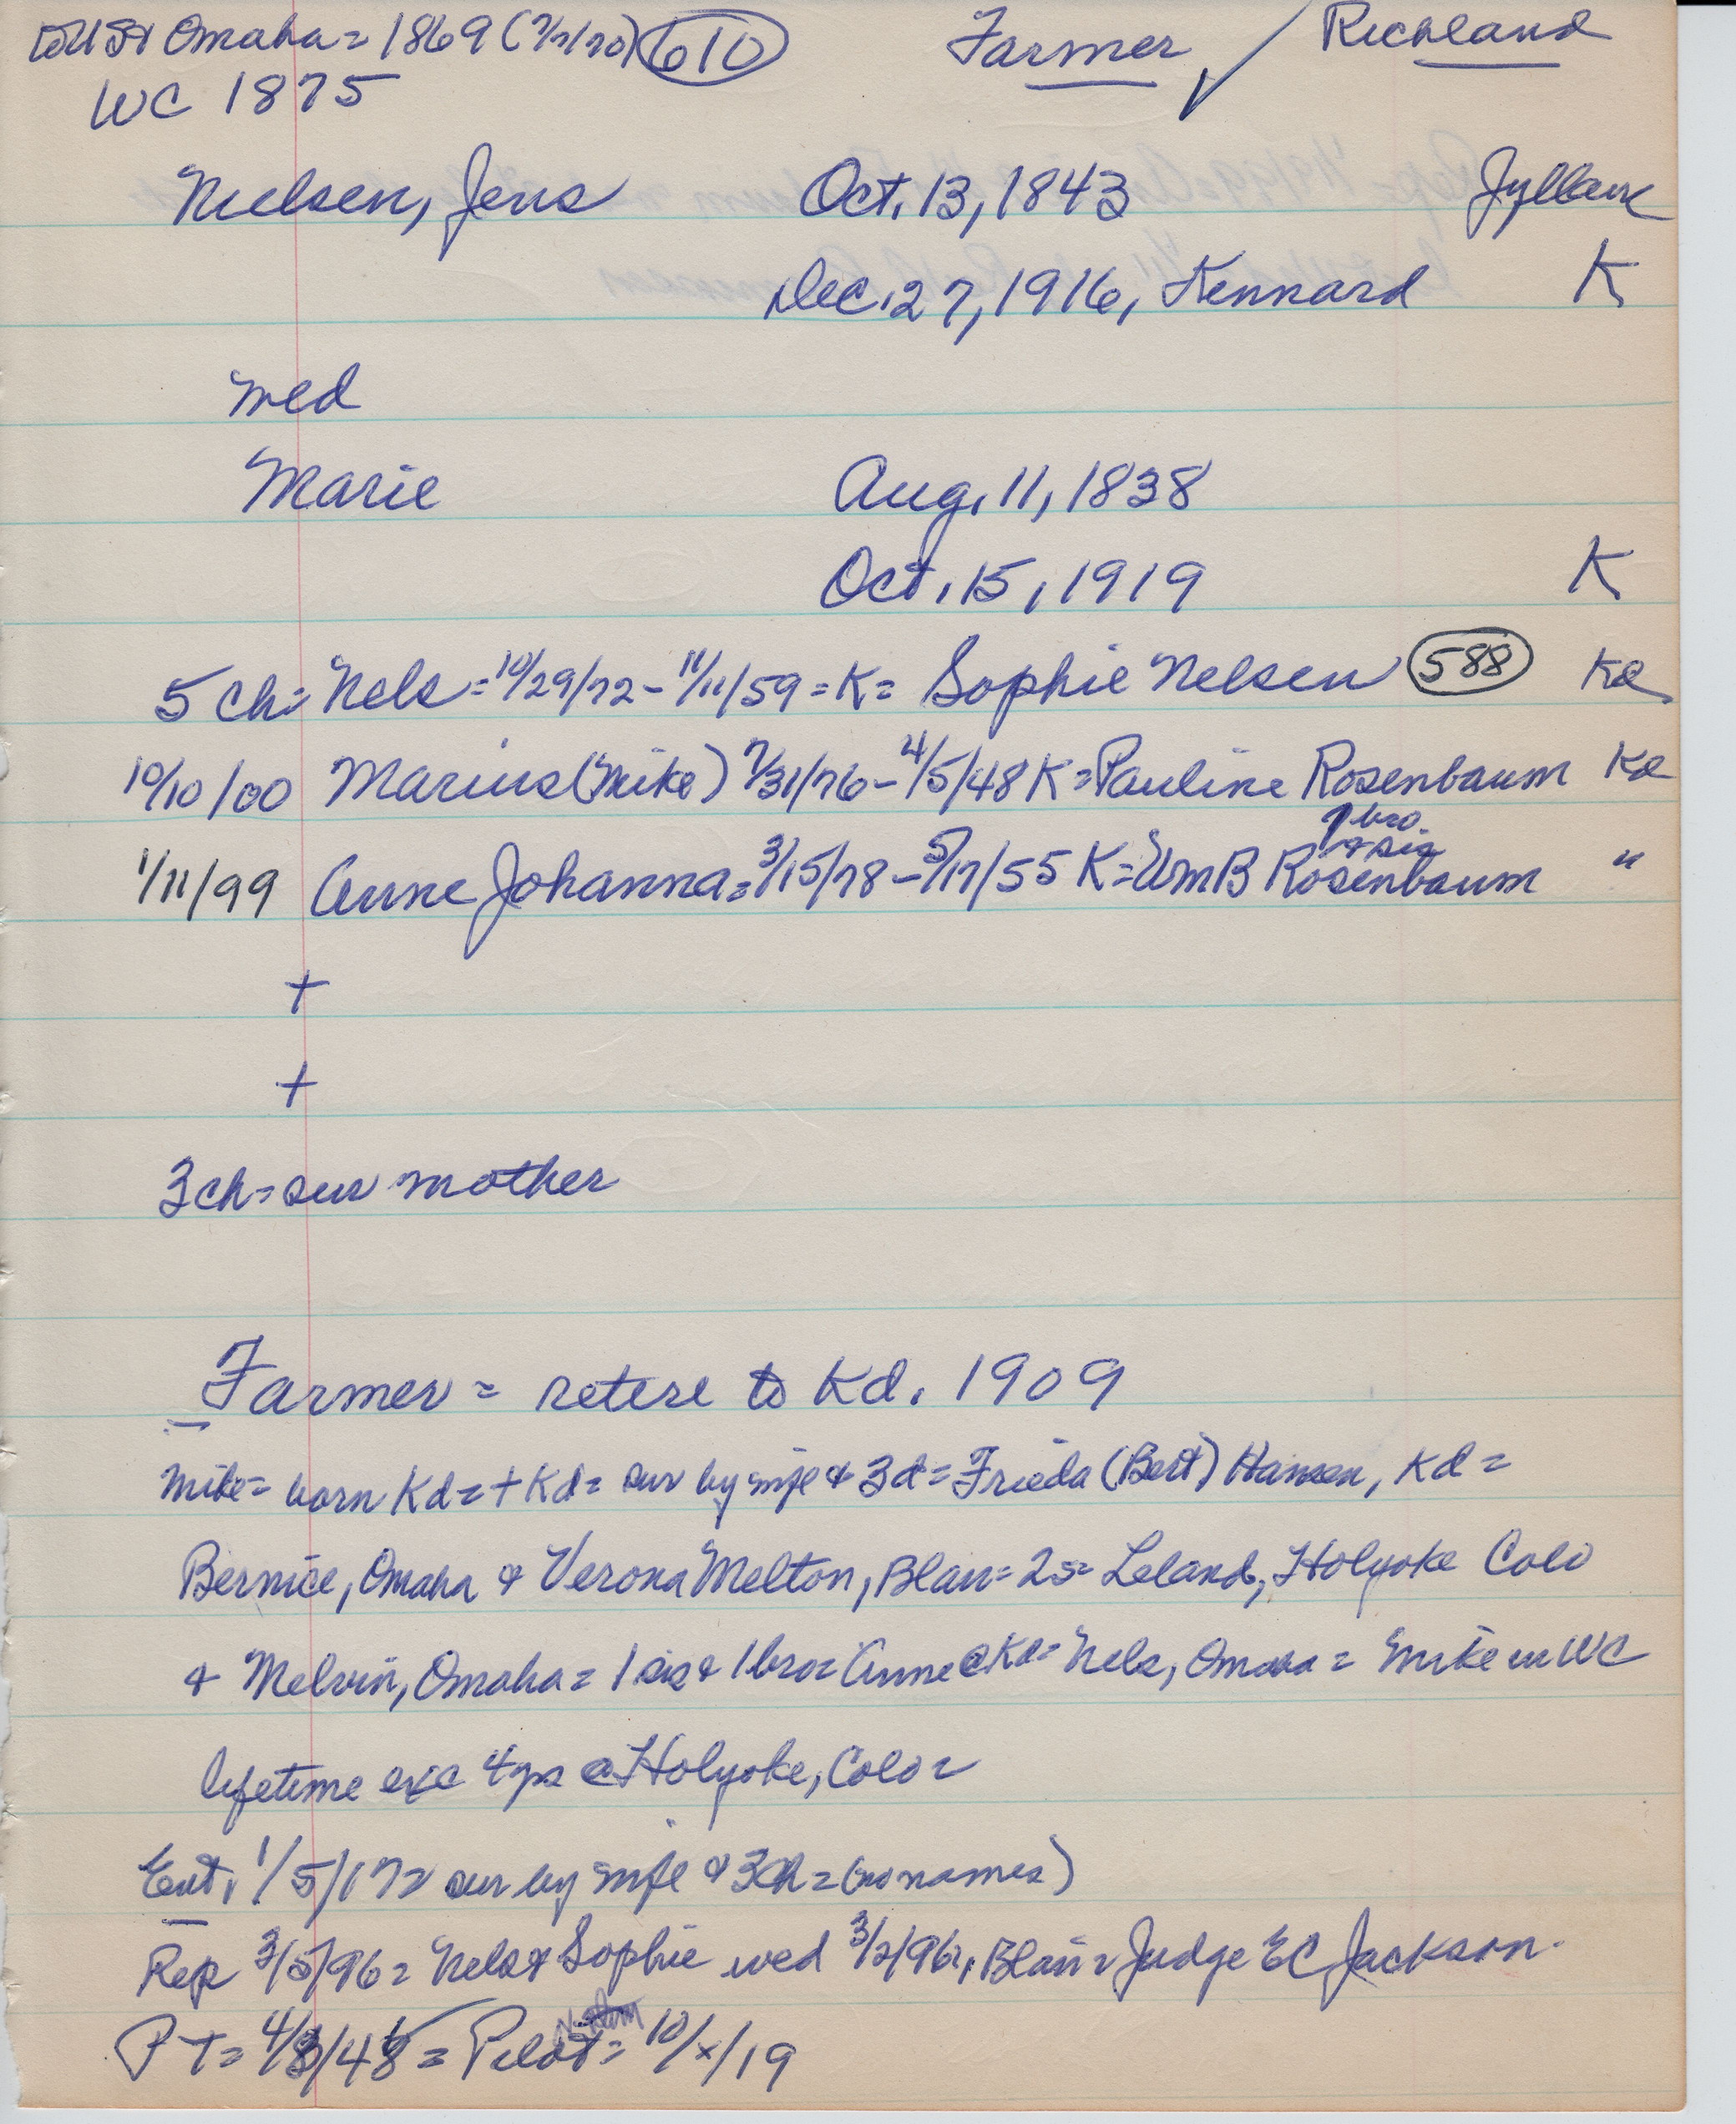 Omaha = 1869 (7/1/70) 610 Farmer ✓ Richland
WC 1875
Nielsen, Jens Oct. 13, 1843 Jylland
Dec. 27, 1916, Kennard K
wed
Marie Aug. 11, 1838
Oct. 15, 1919 K
5 ch = Nels = 10/29/72 - 11/11/59 = K = Sophie Nelsen 588 Kd
10/10/00 Marius (Mike) 7/31/76 - 4/5/48 K = Pauline Rosenbaum Kd
bro.
& sis
1/11/99 Anne Johanna = 3/15/78 - 5/17/55 K = Wm B Rosenbaum "
+
+
3 ch = sur mother
Farmer = retire to Kd. 1909
Mike = born Kd = + Kd = sur by wife & 3 d = Frieda (Bert) Hansen, Kd =
Bernice, Omaha & Verona Melton, Blair = 2 s = Leland, Holyoke Colo
& Melvin, Omaha = 1 sis & 1 bro = Anne @ Kd = Nels, Omaha = Mike in WC
lifetime exc 4 yrs @ Holyoke, Colo =
Ent. 1/5/17 = sur by wife & 3 ch = (no names)
Rep 3/5/96 = Nels & Sophie wed 3/2/96, Blair = Judge EC Jackson.
PT = 4/8/48 = Pilot = 10/x/19